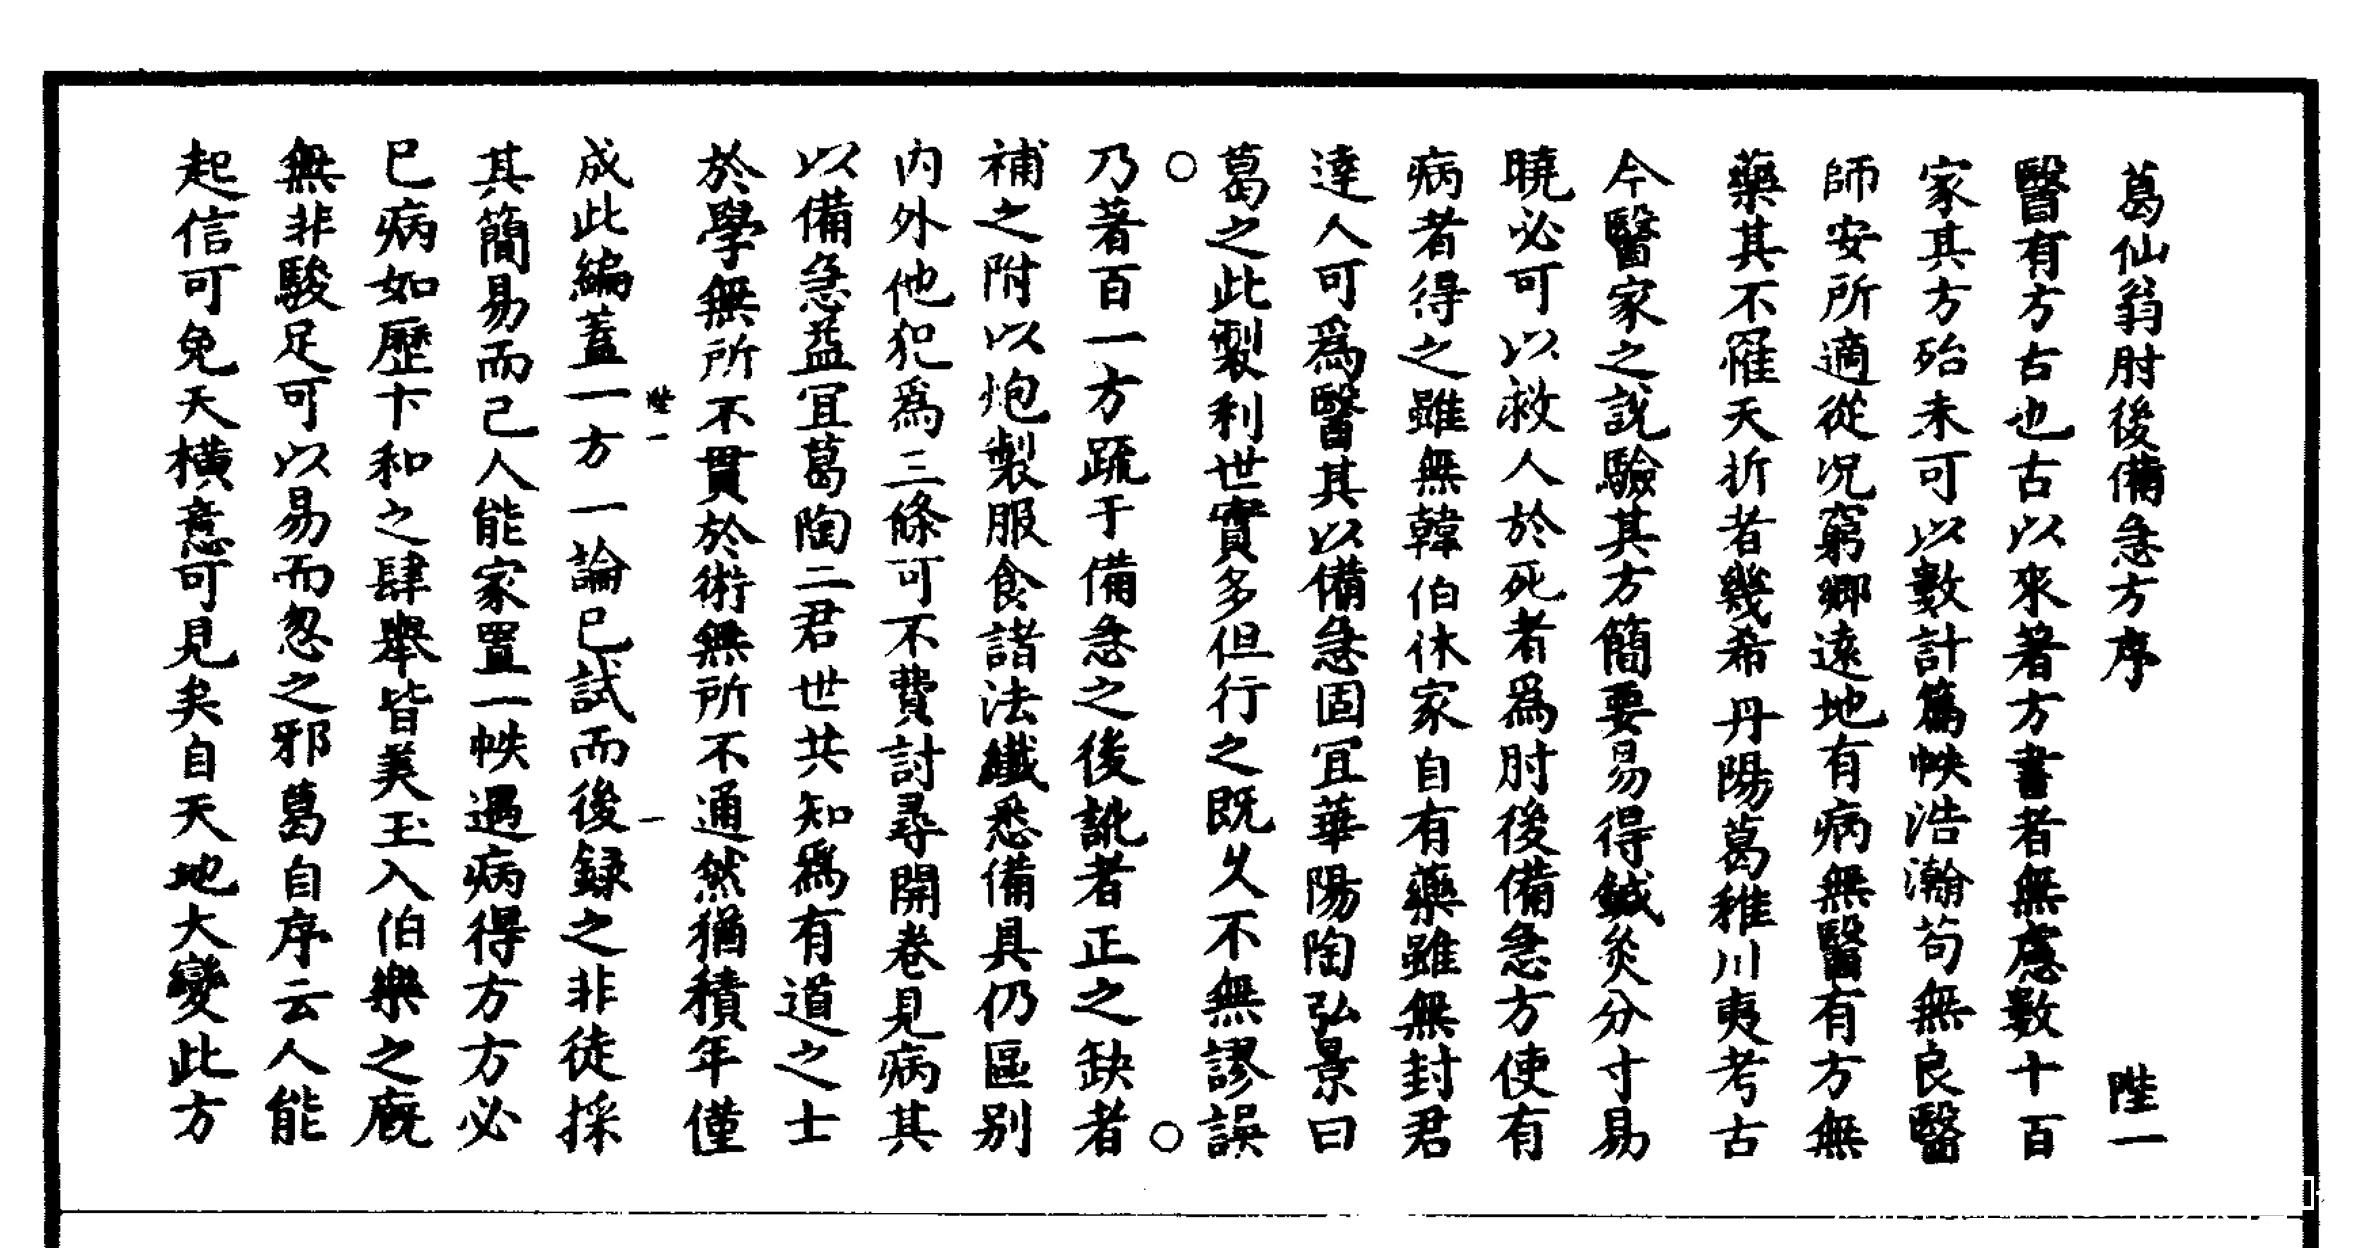 葛仙翁肘後備急方序 陛一
醫有方古也古以來著方書者無慮數十百
家其方殆未可以數計篇帙浩瀚苟無良醫
師安所適從況窮鄉遠地有病無醫有方無
藥其不罹夭折者幾希丹陽葛稚川夷考古
今醫家之說驗其方簡要易得鍼灸分寸易
曉必可以救人於死者爲肘後備急方使有
病者得之雖無韓伯休家自有藥雖無封君
達人可爲醫其以備急固宜華陽陶弘景曰
葛之此製利世實多但行之既久不無謬誤
○ ○
乃著百一方疏于備急之後訛者正之缺者
補之附以炮製服食諸法纖悉備具仍區別
內外他犯爲三條可不費討尋開卷見病其
以備急益宜葛陶二君世共知爲有道之士
於學無所不貫於術無所不通然猶積年僅
陛一 一
成此編蓋一方一論已試而後録之非徒採
其簡易而已人能家置一帙遇病得方方必
已病如歷卞和之肆舉皆美玉入伯樂之廐
無非駿足可以易而忽之邪葛自序云人能
起信可免夭橫意可見矣自天地大變此方